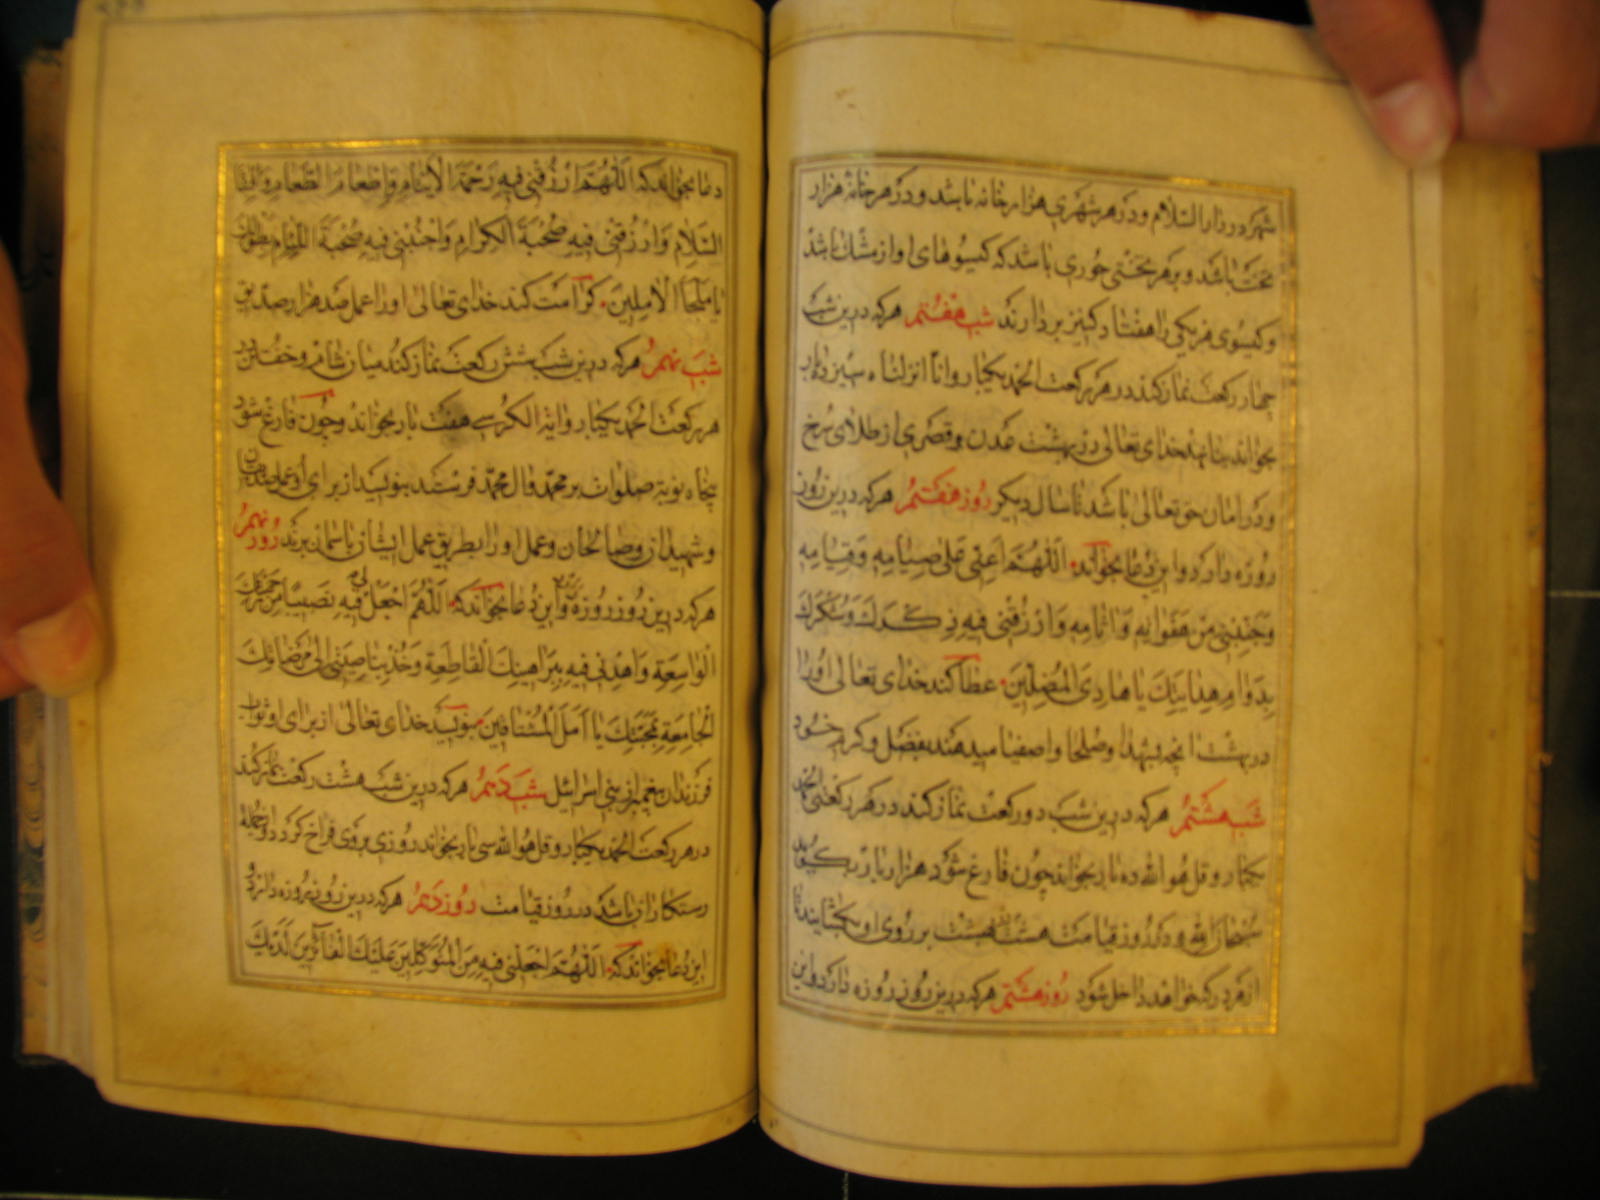 شهر در دار السلام و در هر شهری هزار خانه باشد و در هر خانه هزار
تخت باشد و بر هر تختی حوری باشد که گیسوهای او از مشک باشد
و گیسوی هر یکی را هفتاد کنیز بردارند شب هفتم هر که درین شب
چهار رکعت نماز کند در هر رکعت الحمد یکبار و انا انزلناه سیزده بار
بخواند بنا نهد خدای تعالی در بهشت عدن قصری از طلای سرخ
و در امان حق تعالی باشد تا سال دیگر روز هفتم هر که درین روز
روزه دارد و این دعا بخواند اللهم اعنی علی صیامه و قیامه
و جنبنی من هفواته و اثامه و ارزقنی فیه ذکرک و شکرک
بدوام هدایتک یا هادی المضلین عطا کند خدای تعالی او را
در بهشت انچه شهدا و صلحا و اصفیا میدهند بفضل و کرم خود
شب هشتم هر که درین شب دو رکعت نماز کند در هر رکعتی الحمد
یکبار و قل هو الله ده بار بخواند چون فارغ شود هزار بار بگوید
سبحان الله در روز قیامت هشت بهشت بر روی او بگشایند تا
از هر در که خواهد داخل شود روز هشتم هر که درین روز روزه دارد و این
دعا بخواند که اللهم ارزقنی فیه رحمة الایتام و اطعام الطعام و افشا
السلام و ارزقنی فیه صحبة الکرام و اجنبنی فیه صحبة اللئام بطولک
یا ملجأ الاملین کرامت کند خدای تعالی او را عمل صد هزار صدیق
شب نهم هر که درین شب شش رکعت نماز کند میان شام و خفتن در
هر رکعت الحمد یکبار و ایة الکرسی هفت بار بخواند و چون فارغ شود
پنجاه نوبة صلوات بر محمد و ال محمد فرستد بنویسد از برای او عمل صدیقان
و شهیدان و صالحان و عمل او را بطریق عمل ایشان باسمان برند روز نهم
هر که درین روز روزه دارد و این دعا بخواند که اللهم اجعل لی فیه نصیبا من رحمتک
الواسعة و اهدنی فیه ببراهینک القاطعة و خذ بناصیتی الی مرضاتک
الجامعة بمحبتک یا امل المشتاقین بنویسد خدای تعالی از برای او ثواب
فرزندان پیغمبر از بنی اسرائیل شب دهم هر که درین شب هشت رکعت نماز کند
در هر رکعت الحمد یکبار و قل هو الله سی بار بخواند روزی بروی فراخ گردد و از جمله
رستکاران باشد در روز قیامت روز دهم هر که درین روز روزه دارد و
این دعا بخواند که اللهم اجعلنی فیه من المتوکلین علیک الفائزین لدیک